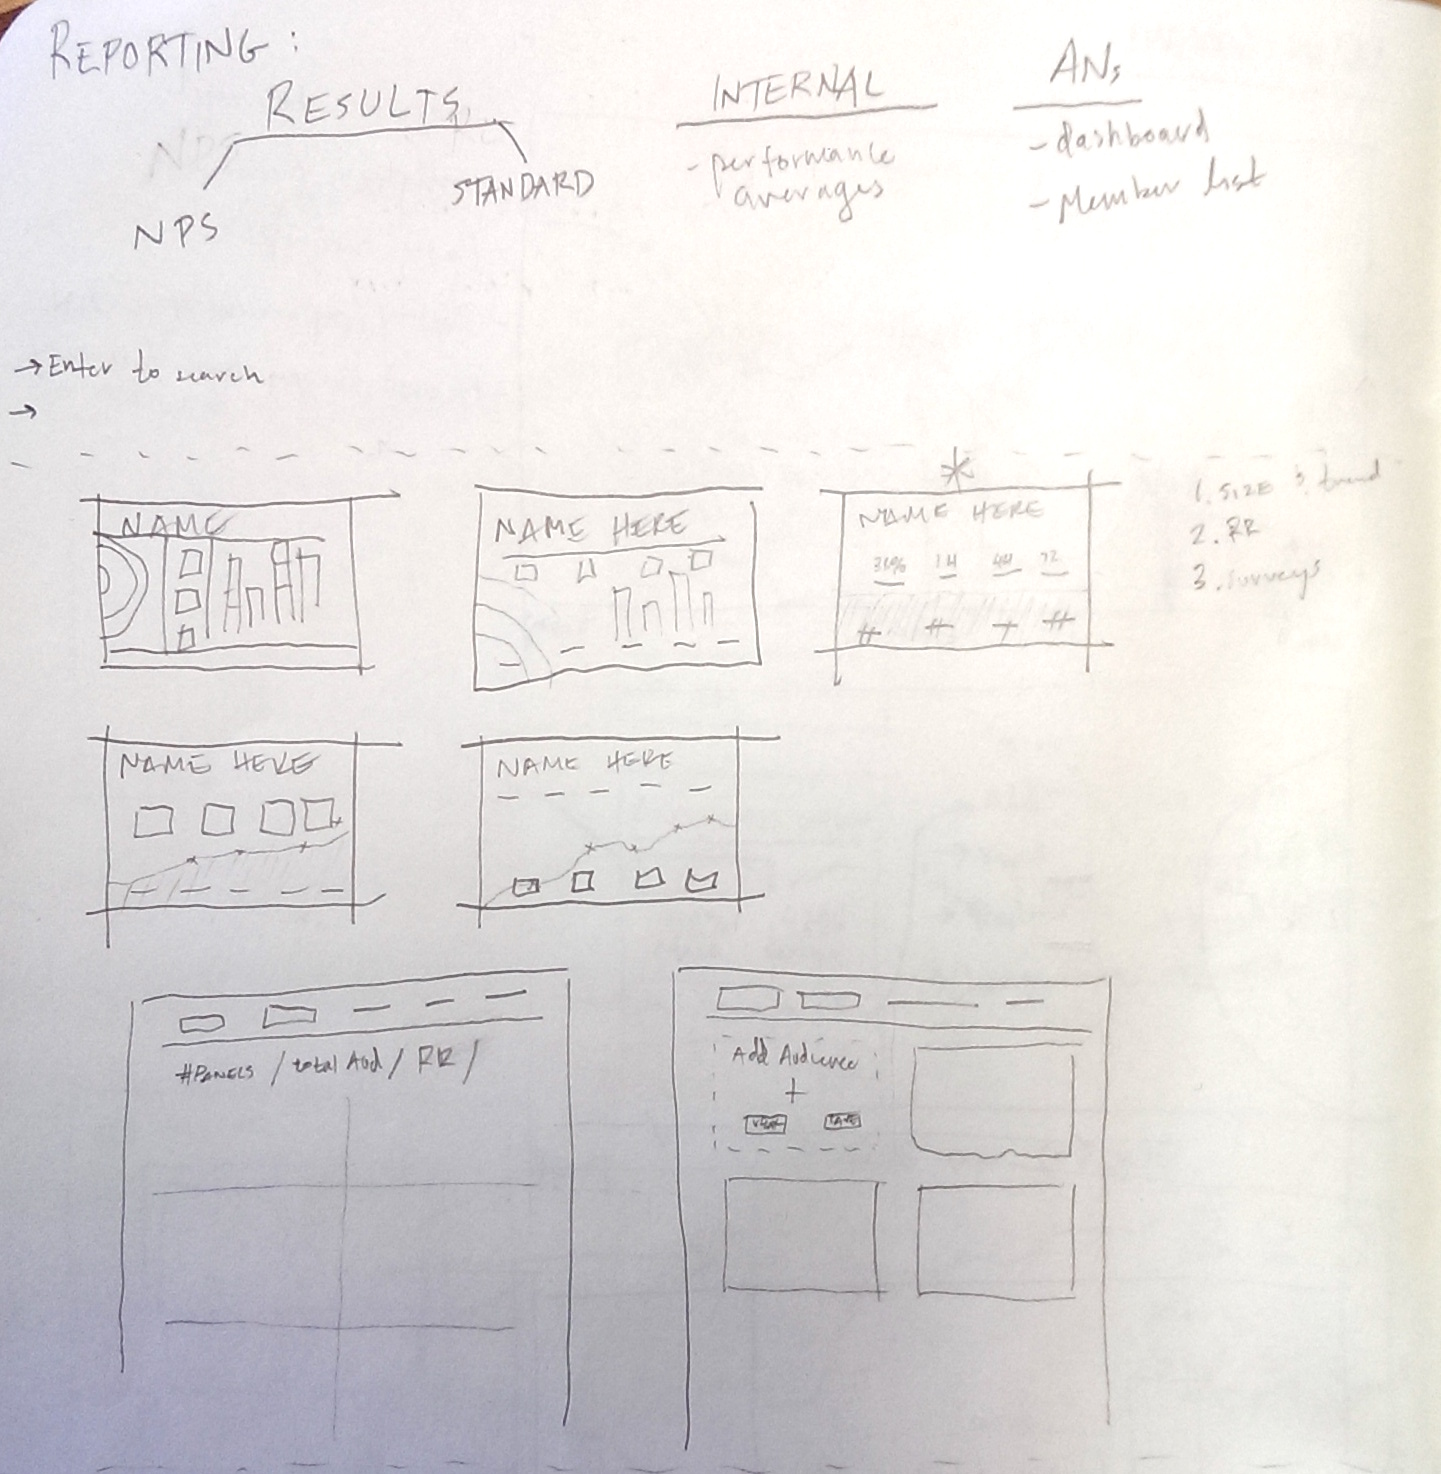 REPORTING:
RESULTS
NPS
STANDARD
INTERNAL
- performance
averages
ANs
- dashboard
- Member list
→ Enter to search
→
NAME
NAME HERE
* NAME HERE
33% 14 44 72
# # + #
1. SIZE & trend
2. RR
3. surveys
NAME HERE
NAME HERE
#PANELS / total Aud / RR /
Add Audience
+